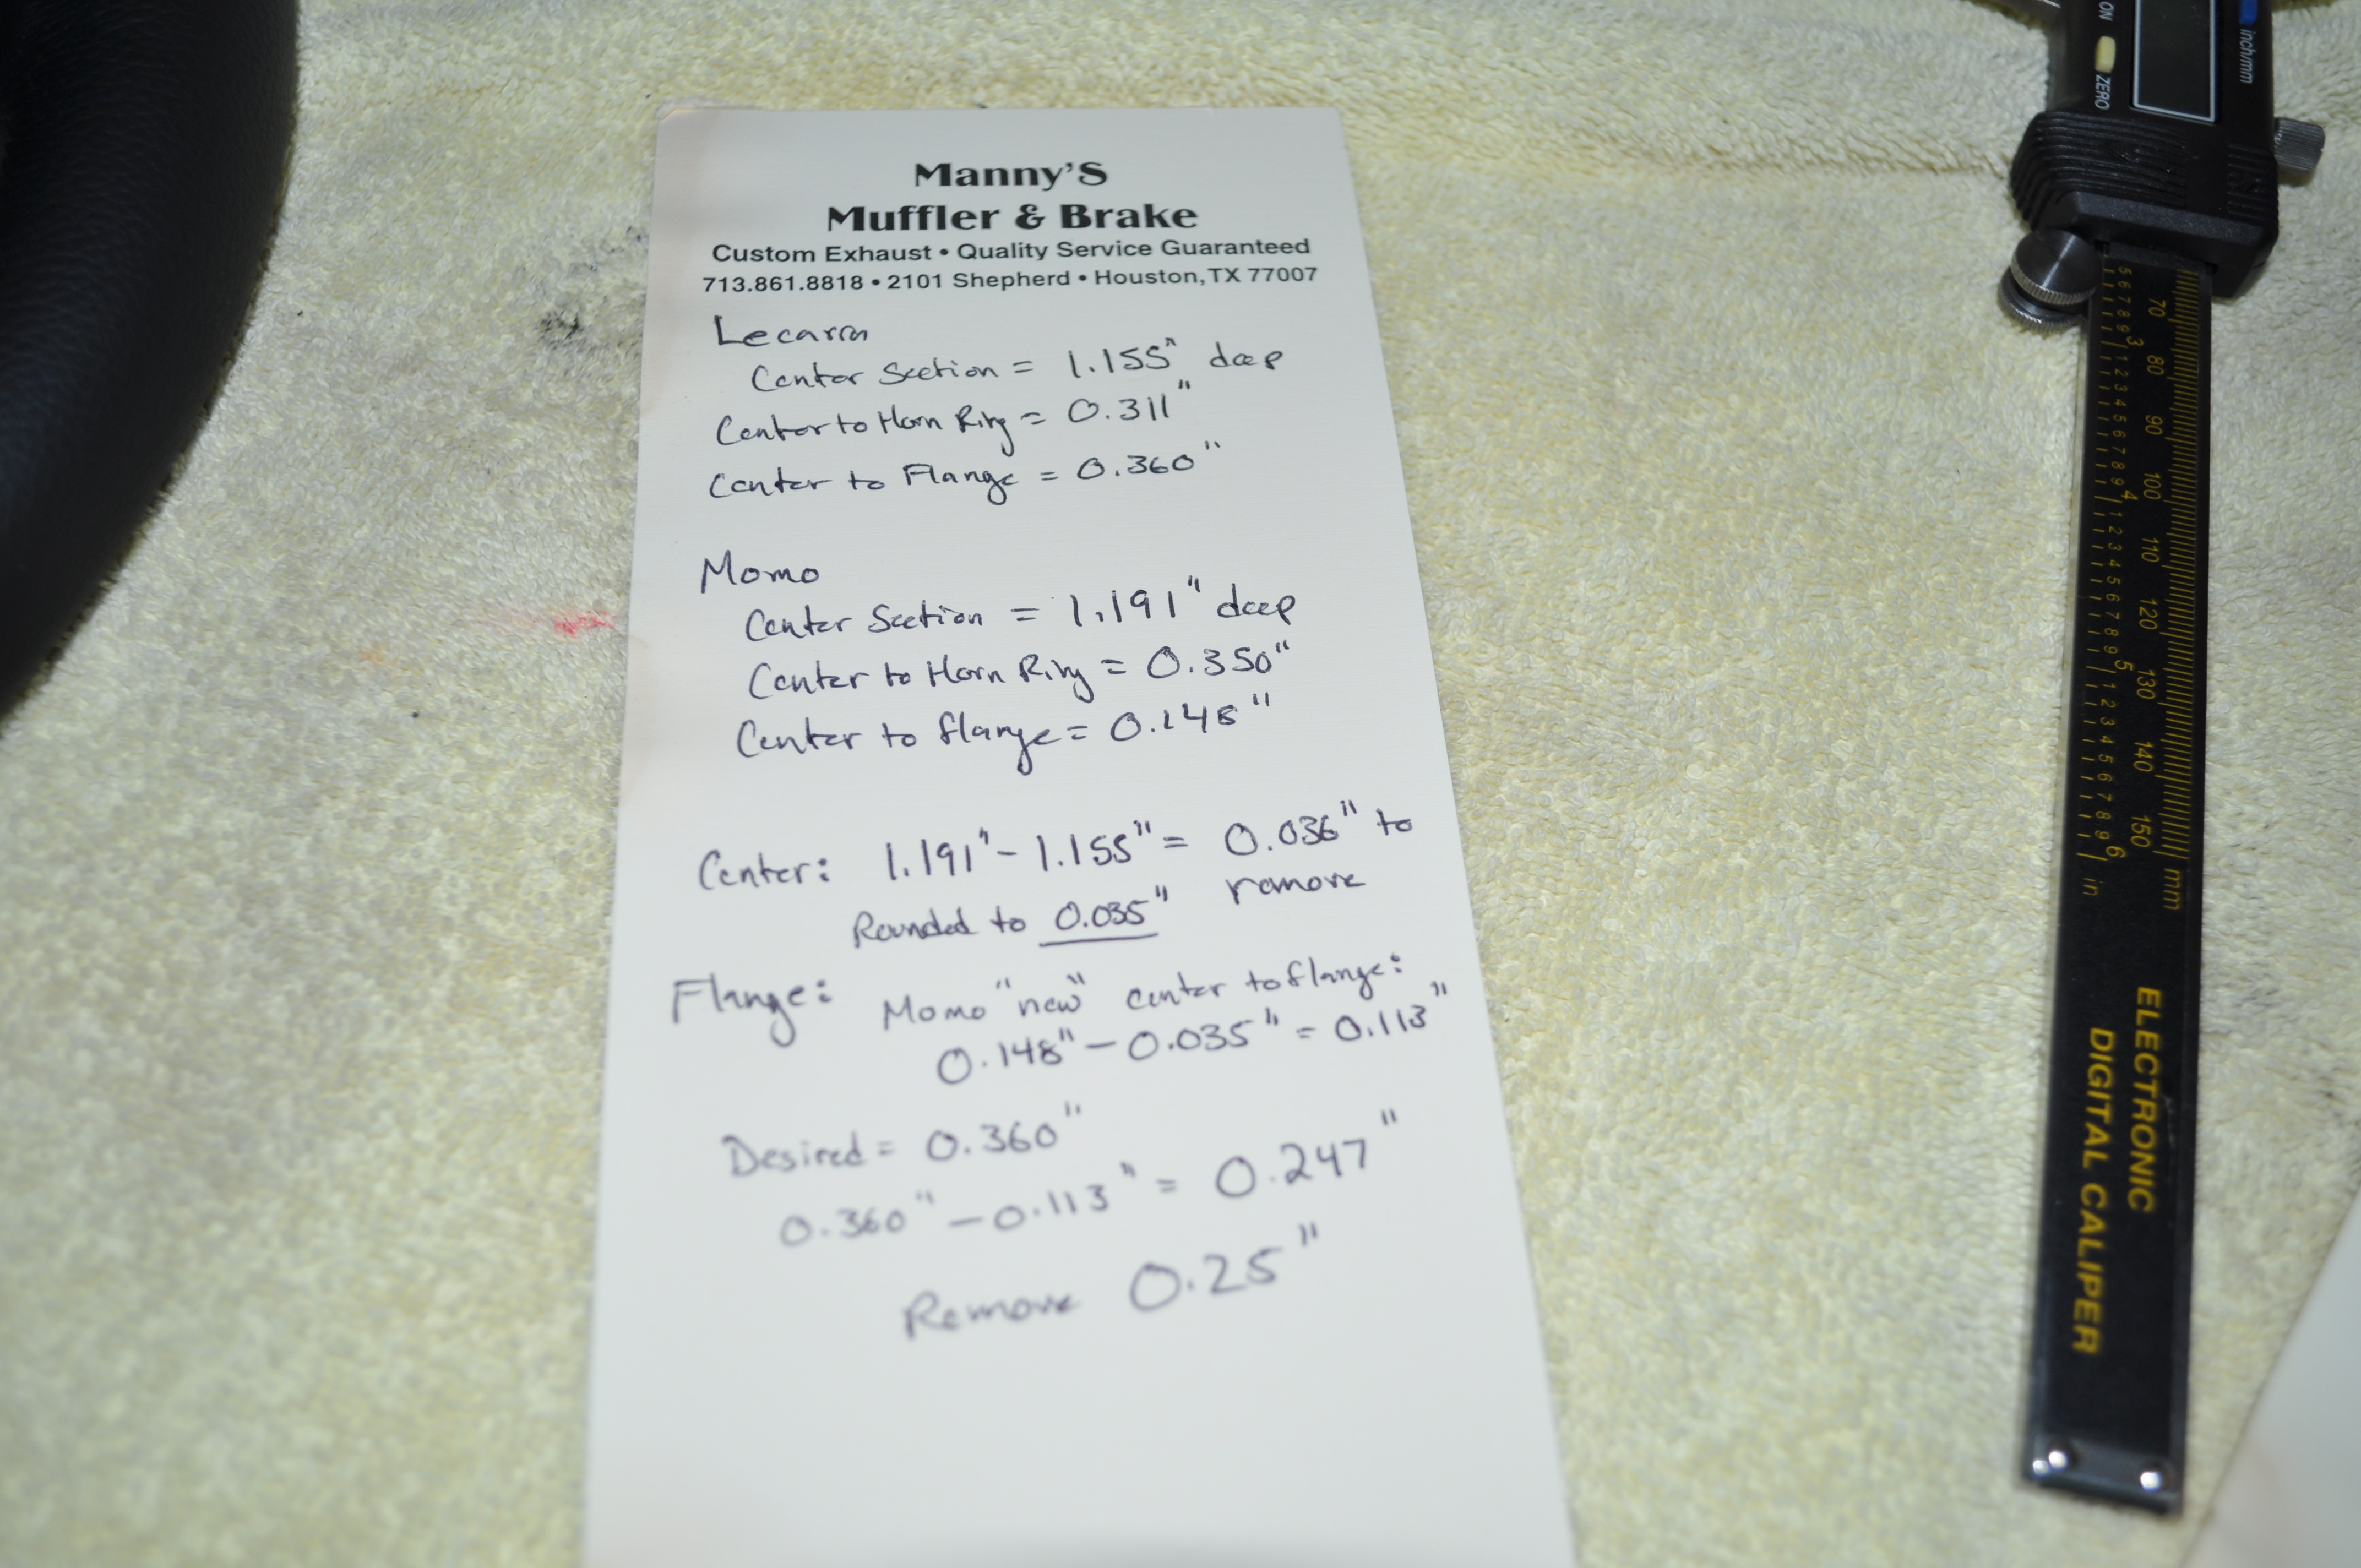 Manny'S
Muffler & Brake
Custom Exhaust • Quality Service Guaranteed
713.861.8818 • 2101 Shepherd • Houston, TX 77007
Lecarra
Center Section = 1.155" deep
Center to Horn Ring = 0.311"
Center to Flange = 0.360"
Momo
Center Section = 1.191" deep
Center to Horn Ring = 0.350"
Center to flange = 0.148"
Center: 1.191" - 1.155" = 0.036" to
remove
Rounded to 0.035"
Flange: Momo "new" center to flange:
0.148" - 0.035" = 0.113"
Desired = 0.360"
0.360" - 0.113" = 0.247"
Remove 0.25"
ON
ZERO
inch/mm
5 6 7 8 9 3 1 2 3 4 5 6 7 8 9 4 1 2 3 4 5 6 7 8 9 5 1 2 3 4 5 6 7 8 9 6 in
70 80 90 100 110 120 130 140 150 mm
ELECTRONIC
DIGITAL CALIPER